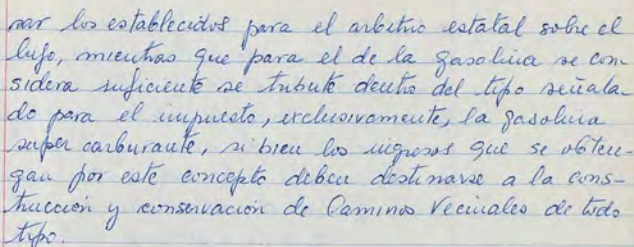 nar los establecidos para el arbitrio estatal sobre el
lujo, mientras que para el de la gasolina se con
sidera suficiente se tribute dentro del tipo señala-
do para el impuesto, exclusivamente, la gasolina
super carburante, si bien los ingresos que se obten-
gan por este concepto deben destinarse a la cons-
trucción y conservación de Caminos Vecinales de todo
tipo.